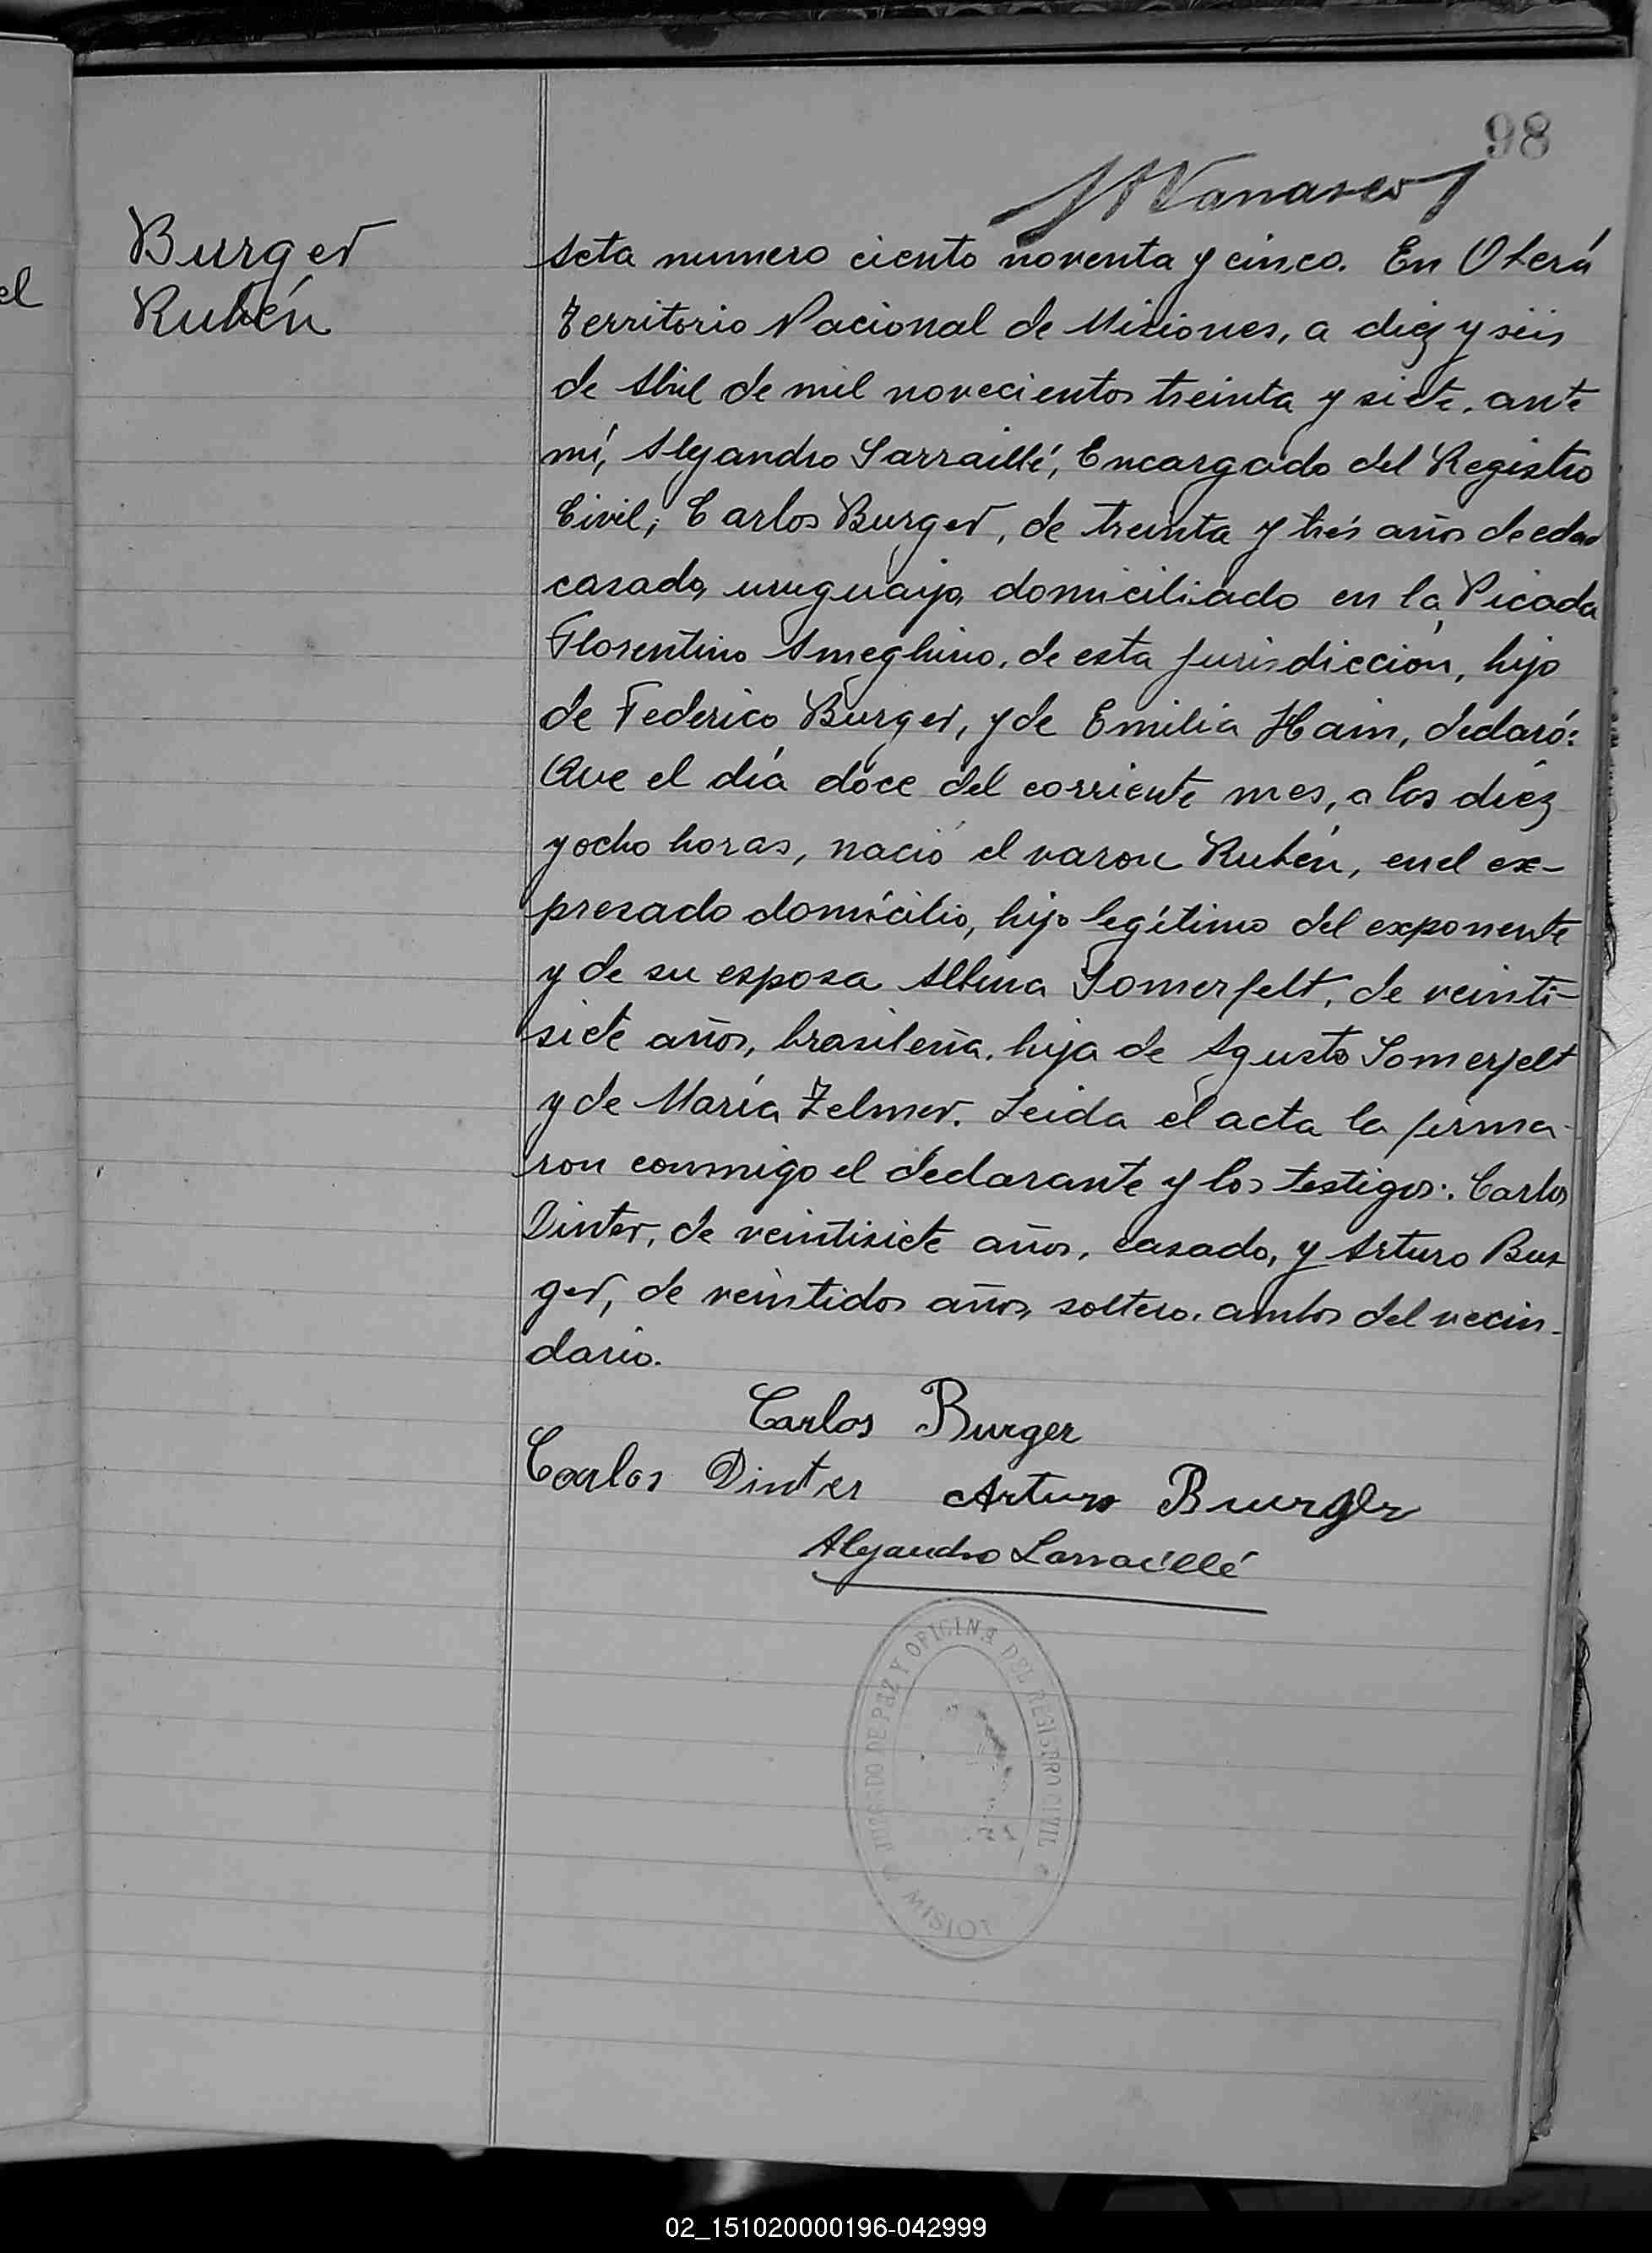 98
Burger
Rubén
el
Acta numero ciento noventa y cinco. En Oberá
Territorio Nacional de Misiones, a diez y seis
de Abril de mil novecientos treinta y siete, ante
mí, Alejandro Larraillé, Encargado del Registro
Civil; Carlos Burger, de treinta y trés años de edad
casado, uruguayo, domiciliado en la Picada
Florentino Ameghino, de esta jurisdicción, hijo
de Federico Burger, y de Emilia Hain, declaró:
Que el día doce del corriente mes, a las diéz
y ocho horas, nació el varon Rubén, en el ex-
presado domicilio, hijo legítimo del exponente
y de su esposa Albina Somerfelt, de veinti-
siete años, brasileña, hija de Agusto Somerfelt
y de María Zelmer. Leida el acta la firma-
ron conmigo el declarante y los testigos: Carlos
Dinter, de veintisiete años, casado, y Arturo Bur
ger, de veintidos años, soltero, ambos del vecin-
dario.
Carlos Burger
Carlos Dinter Arturo Burger
Alejandro Larraillé
JUZGADO DE PAZ Y OFICINA DEL REGISTRO CIVIL
02_151020000196-042999